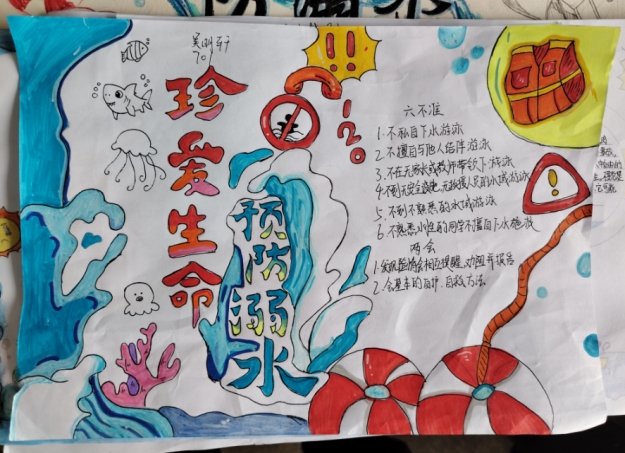 701
珍爱生命
预防溺水
六不准
1.不私自下水游泳
2.不擅自与他人结伴游泳
3.不在无家长或教师带领下游泳
4.不到无安全设施、无救援人员的水域游泳
5.不到不熟悉的水域游泳
6.不熟悉水性的同学不擅自下水施救
两会
1.发现险情会相互提醒、劝阻并报告
2.会基本的自护、自救方法